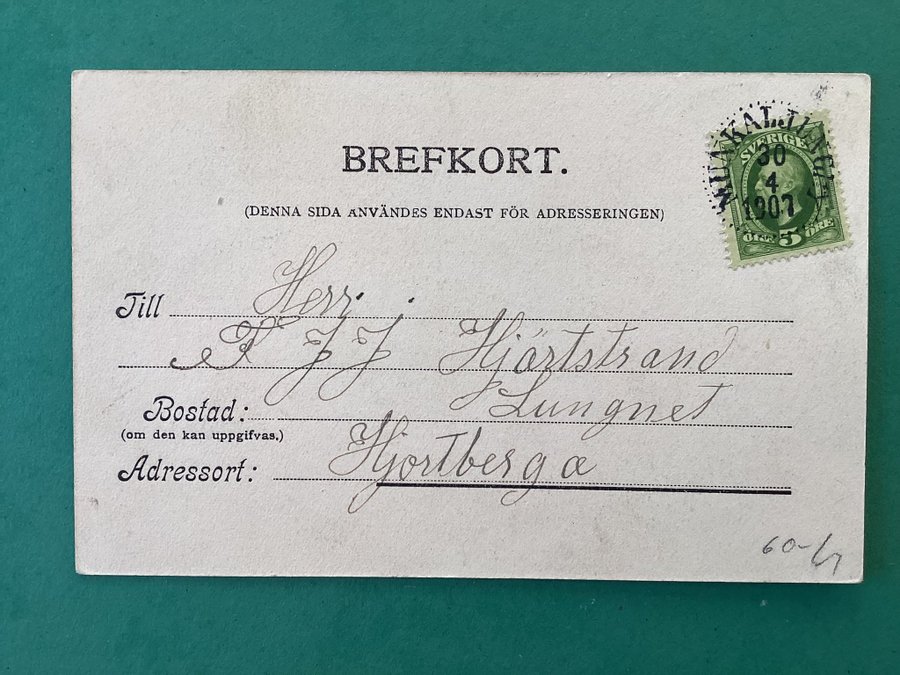 BREFKORT.
(DENNA SIDA ANVÄNDES ENDAST FÖR ADRESSERINGEN)
MUNKALJUNGBY
30
4
1907
SVERIGE
5
ÖRE
Till Herr.
F J J Hjörtstrand
Bostad: Lungnet
(om den kan uppgifvas.)
Adressort: Hjortberga
60-